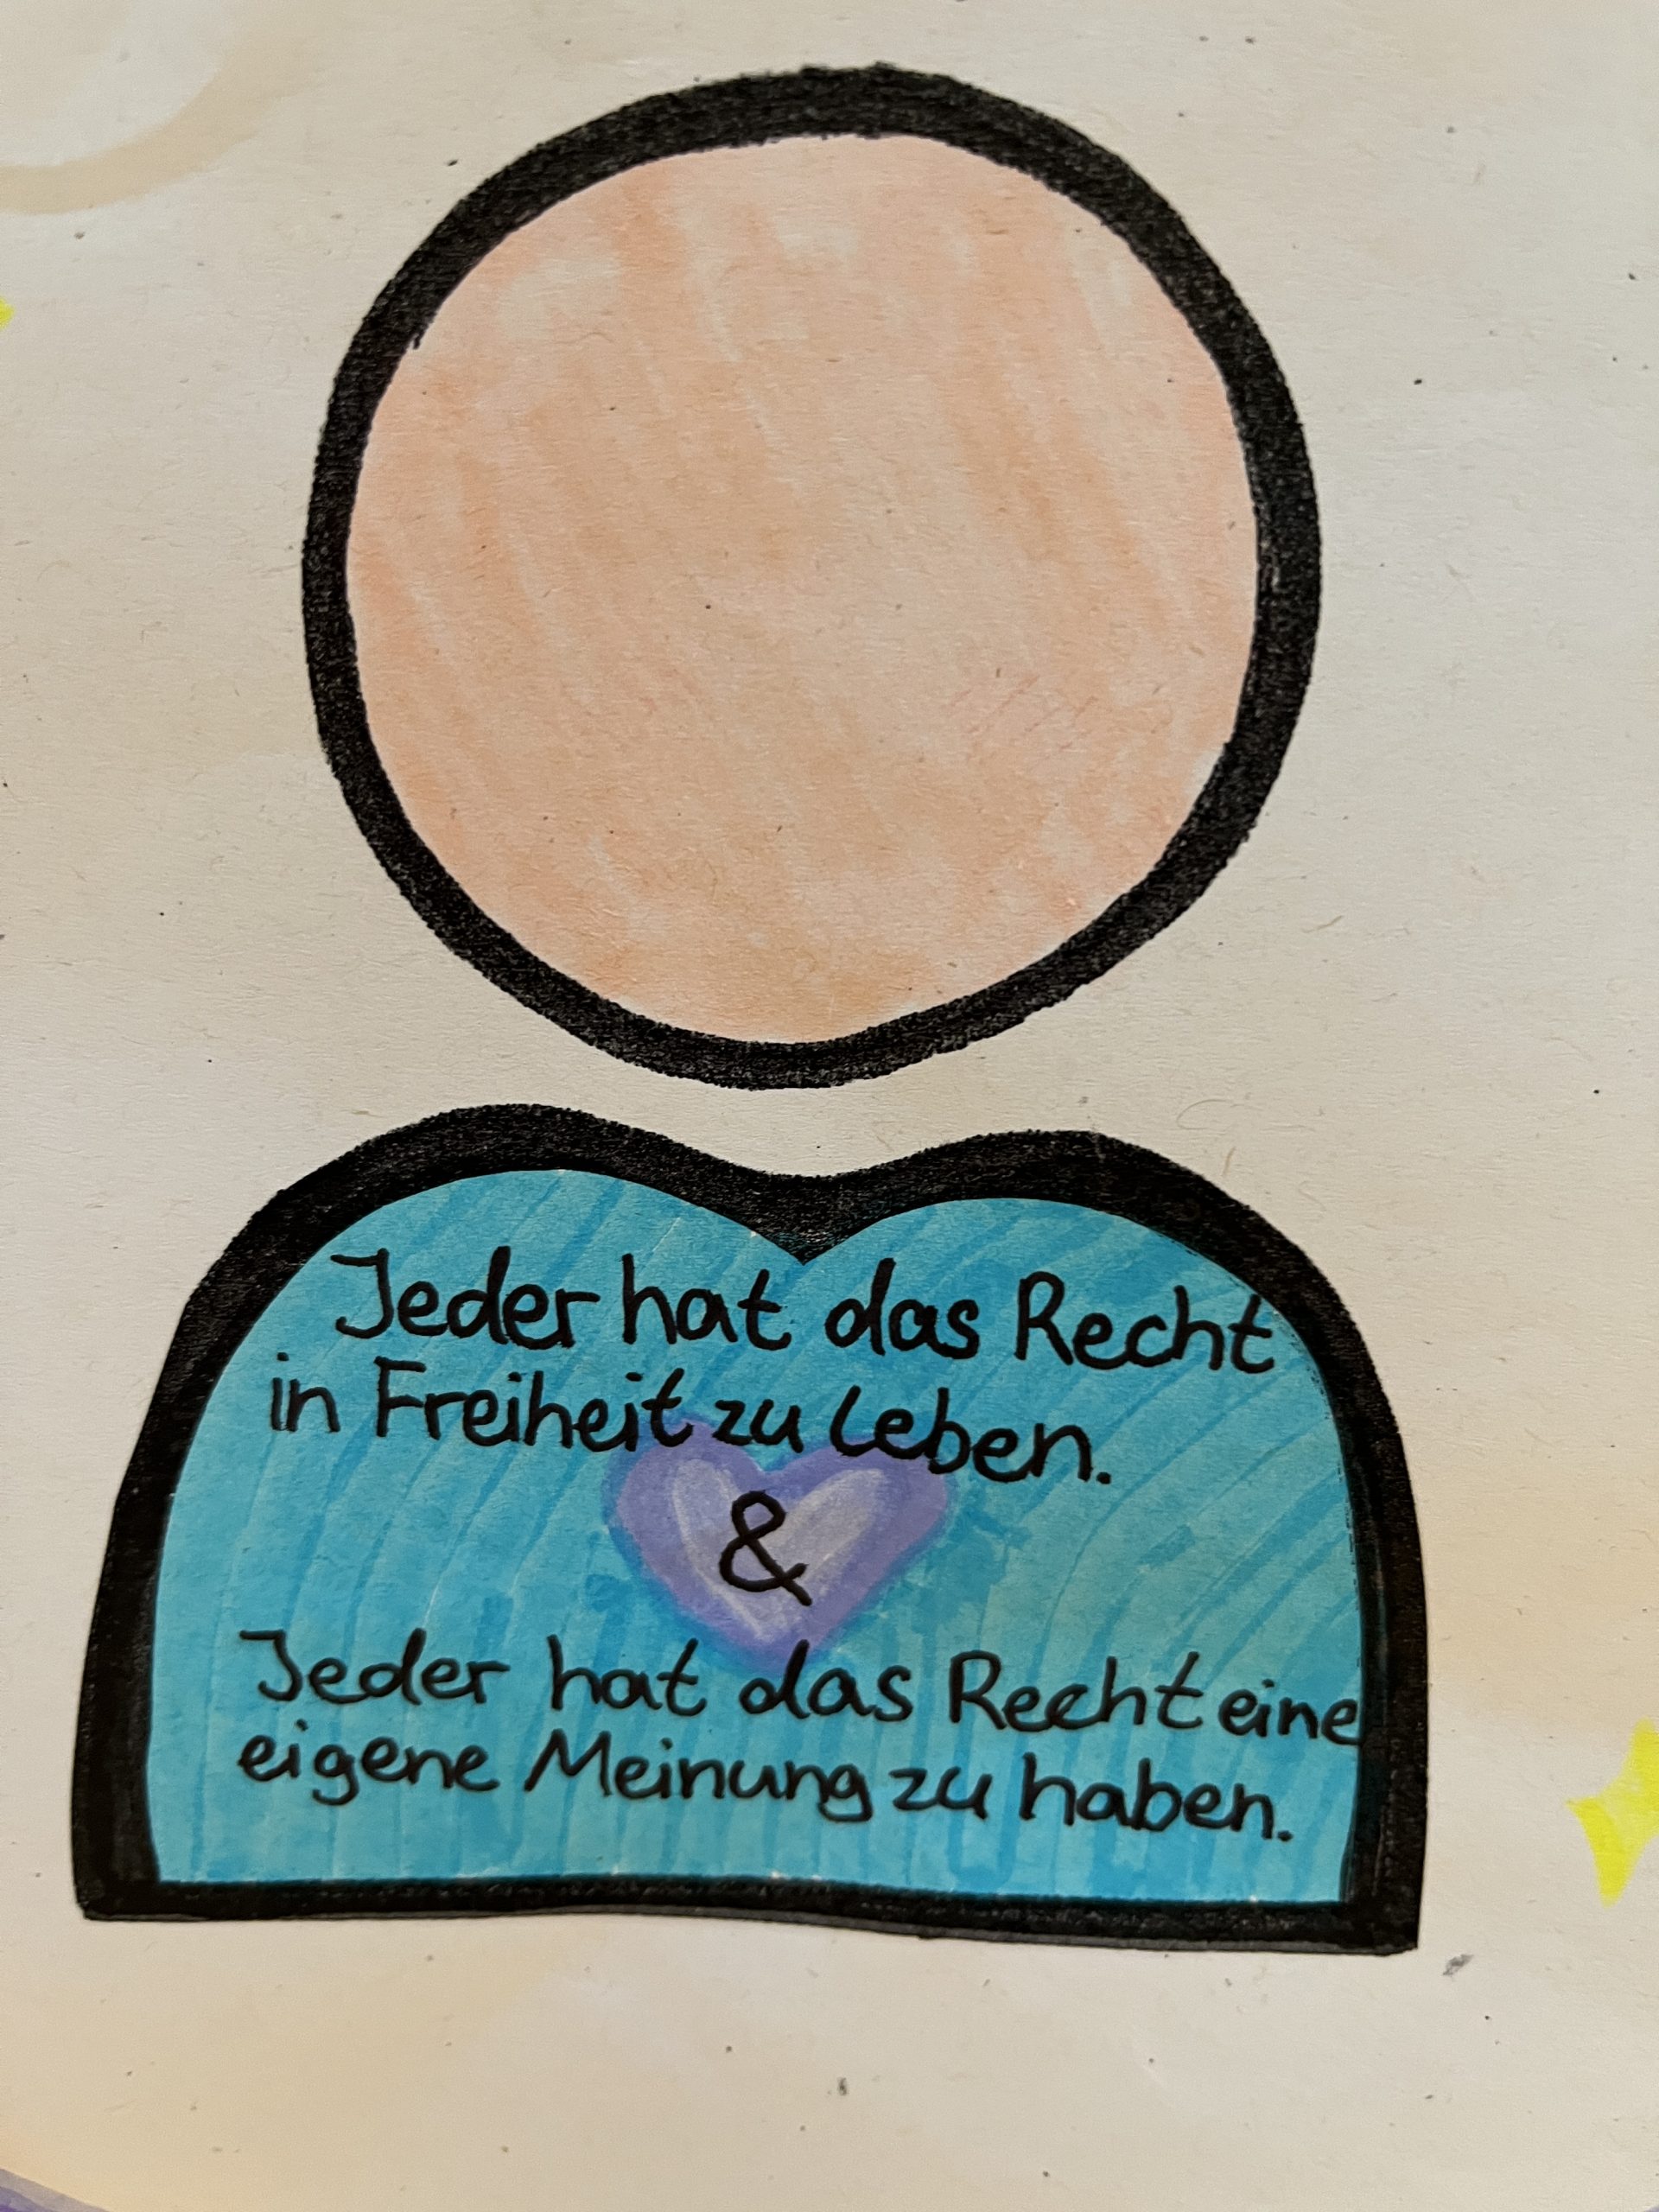 Jeder hat das Recht
in Freiheit zu leben.
&
Jeder hat das Recht eine
eigene Meinung zu haben.